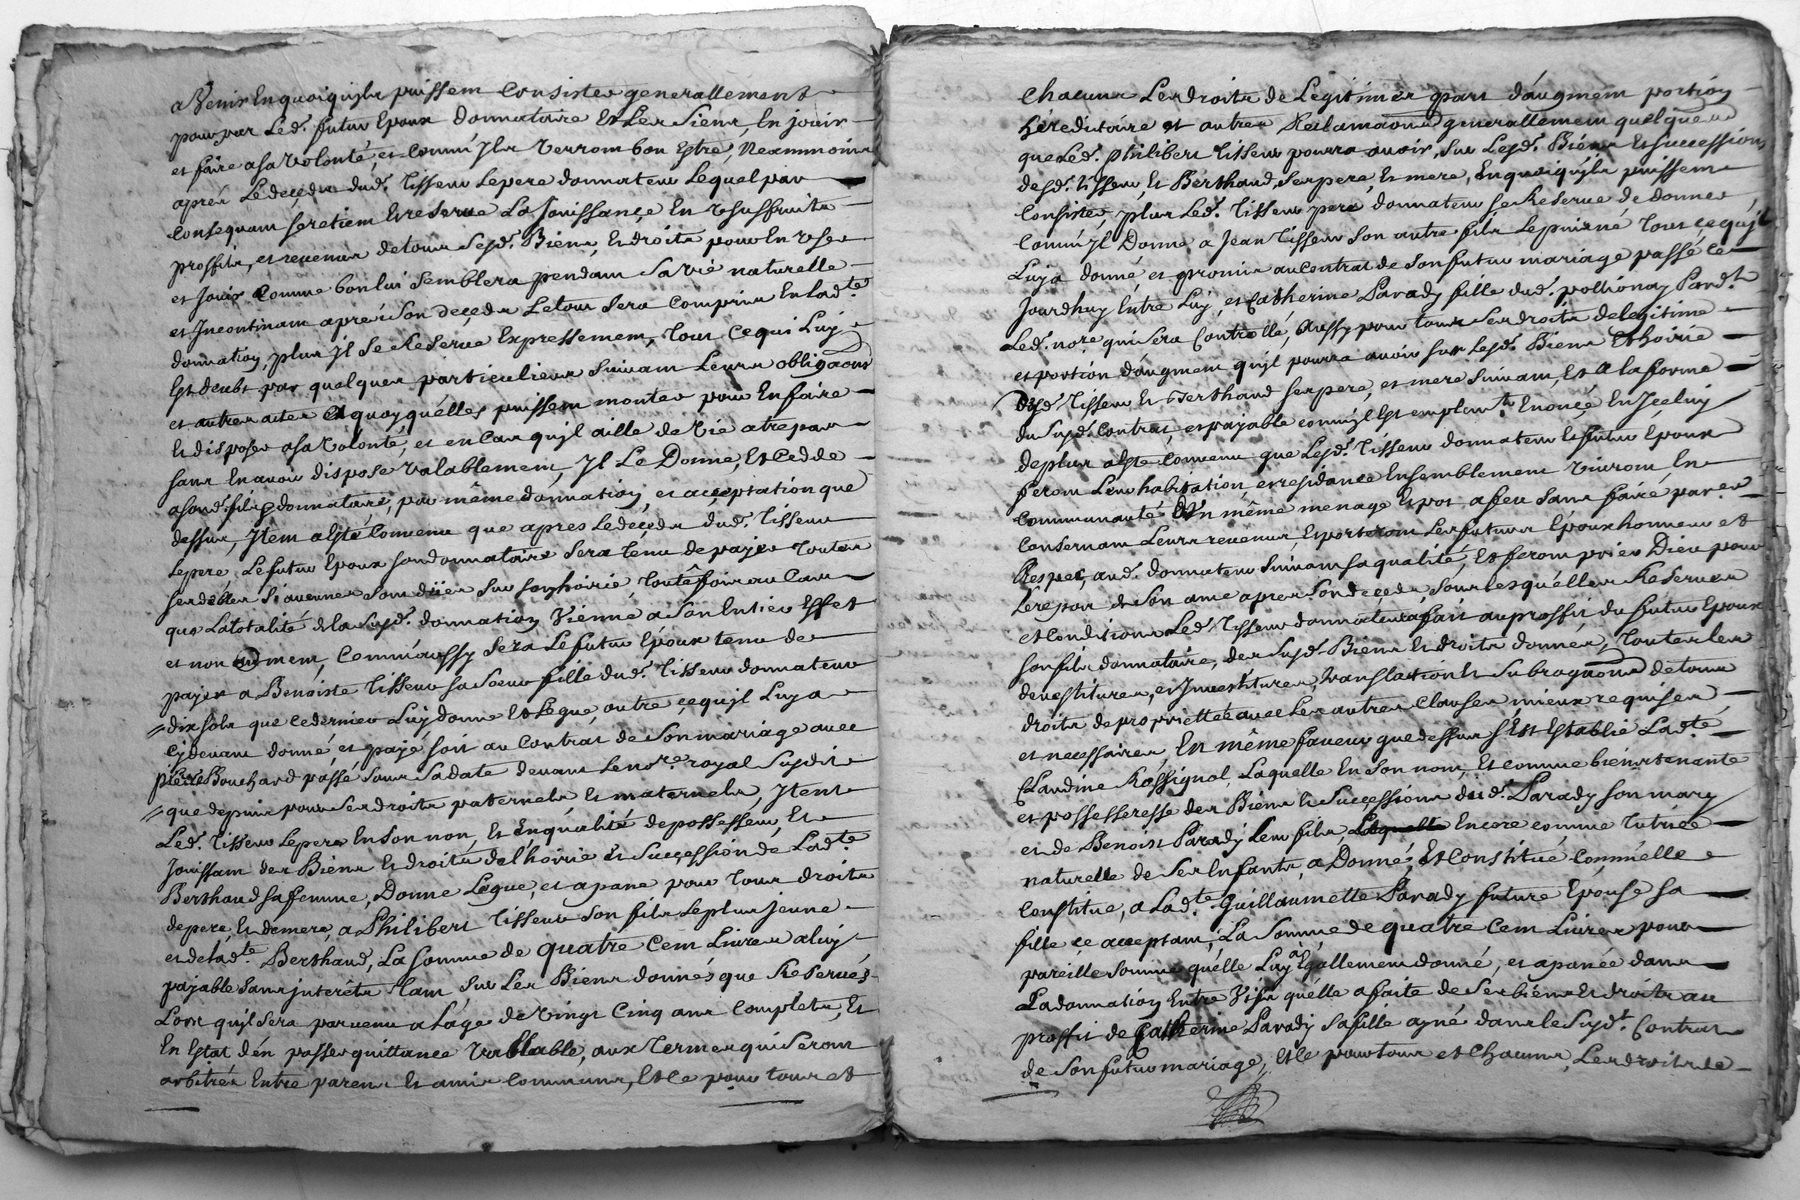 a Venir En quoi qujls puissent Consister generallement
pour par Led. futur Epoux donnataire Et Les Siens, En jouir
et faire a sa volonté et Comm'jls verront bon Estre, Neanmoins
aprés Le deçéds dud. Tisseur Le pere donnateur Lequel par
Consequant se retient Et reserve La Jouissançe En Vsuffruits
proffits, et revenus de tous Sesd. Biens, Et droits pour En Vser
et Jouir Comme bon lui Semblera pendant Sa vie naturelle
et Incontinant aprés Son deçéds Le tout Sera Compris En Ladte
donnation, plus jl Se Reserve Expressement, Tout Ce qui Luy
Est deubt par quelques particuliers Suivant Leurs obligaons
et autres actes Et quoy qu'elles puissent monter pour En faire
Et disposer a sa Volonté, et en Cas qu'jl aille de Vie a trepas
Sans En avoir disposé Valablement, Jl Le Donne, Et Cedde
a Sond. fils donnataire, par même donnation, et acceptation que
dessus, Jtem a Esté Convenu que apres Le deçéds dud. Tisseur
Le pere, Le futur Epoux Son donnataire Sera Tenu de payer Toutes
Ses debtes Si aucunes Sont dües Sur Son hoirie, Toutêffois au Cas
que La totalité de la Susd. donnation Vienne a Son Entier Effet
et non autrement, Comm'aussy Sera Le futur Epoux tenu de
payer a Benoiste Tisseur Sa Soeur fille dud. Tisseur donnateur
dix Sols que ce dernier Luy donne Et Legue, outre ce qu'jl Luy a
Cy devant donné, et payé, soit au Contrat de Son mariage avec
pierre Bouchard passé Sous Sa date devant Le nore royal Susdit
que depuis pour Ses droits paternels Et maternels, Jtem
Led. Tisseur Le pere En Son nom, Et En qualité de possesseur, Et
Jouissant des Biens Et droits de l'hoirie Et Succession de Ladte
Berthaud Sa femme, Donne Legue, et apane pour Tous droits
de pere, Et de mere, a Philibert Tisseur Son fils Le plus jeune
et de Ladte Berthaud, La Somme de quatre Cent Livres a luy
payable Sans jnterêts Tant Sur Les Biens donnés que Reservés
Lors qu'jl Sera parvenu a L'age de Vingt Cinq ans Complets, Et
En Estat d'en passer quittance Vallable, aux Termes qui Seront
arbitrés Entre parens Et amis Communs, Et Ce pour tous et
Chacuns Les droits de Legitimes part d'augment portion
héreditaire et autres Reclamaons generallement quelquesd
que Led. Philibert Tisseur pourra avoir, Sur Lesd. Biens Et Successions
desd. Tisseur, Et Berthaud, Ses pere, Et mere, En quoi qu'jls puissent
Consister, plus Led. Tisseur pere donnateur se Reserve de donner
Comm'jl Donne a Jean Tisseur Son autre fils Le puisné Tout ce qu'jl
Luy a donné et promis au Contrat de Son futur mariage passé Ce
Jourdhuy Entre Luy, et Catherine Parady fille dud. pardt
Led. nore qui Sera Controllé, Aussy pour tous Ses droits de legitime
et portion d'augment qu'jl pourra avoir Sur Lesd. Biens Et hoirie
dud. Tisseur Et Berthaud Ses pere, et mere Suivant, Et A la forme
du Susd. Contrat, et payable comm'jl Est Enoncé En Jçeluy
de plus a Esté Convenu que Lesd. Tisseur donnateur Et futur Epoux
feront Leur habitation, et residance Ensemblement Vivront En
Communauté En même menage Et pot a feu Sans faire part
Conservant Leurs revenus, Et porteront Les futurs Epoux honneur et
Respec, aud. donnateur Suivant Sa qualité, Et feront prier Dieu pour
Le repos de Son ame apres Son deçéds, Sous Lesquélles Reserves
et Conditions Led. Tisseur donnateur a fait au proffit du futur Epoux
Son fils donnataire, des Susd. Biens Et droits donnés, Toutes Les
devestitures, et Jnvestitures, translation Et Subrogaons de tous
droits de proprietté avec Les autres Clauses mieux requises
et necessaires, En même faveur que dessus S'Est Establie Ladte
Claudine Rossignol, Laquelle En Son nom, Et comme bienstenante
et possesseresse des Biens Et Successions dud. Parady Son mary
et de Benoist Parady Leur fils, Laquelle Encore comme Tutrice
naturelle de Ses Enfants, a Donné, Et Constitué, Comm'elle
Constitue, a Ladte Guillaumette Parady future Epouse Sa
fille ce acceptant, La Somme de quatre Cent Livres pour
pareille Somme qu'elle Luy a Egallement donné, et apanée dans
La donnation Entre Vifs qu'elle a faite de Ses biens Et droits au
proffit de Catherine Parady Sa fille aynée dans le Susdt. Contrat
de Son futur mariage, Et Ce pour tous et Chacuns, Les droits de